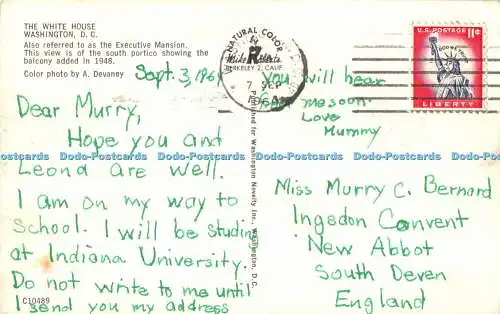 THE WHITE HOUSE
WASHINGTON, D. C.
Also referred to as the Executive Mansion.
This view is of the south portico showing the
balcony added in 1948.
Color photo by A. Devaney
Sept. 3, 1964
Dear Murry,
Hope you and
Leond are well.
I am on my way to
School. I will be studing
at Indiana University.
Do not write to me until
I send you my address
C10489
you will hear
me soon.
Love
Mummy
NATURAL COLOR
Mike Roberts
BERKELEY 2, CALIF.
7 SEP
Published for Washington Novelty, Inc., Washington, D.C.
U.S. POSTAGE 11¢
IN GOD WE TRUST
LIBERTY
Miss Murry C. Bernard
Ingsdon Convent
New Abbot
South Deven
England
Dodo-Postcards Dodo-Postcards Dodo-Postcards Dodo-Postcards Dodo-Postcards Dodo-Postcards